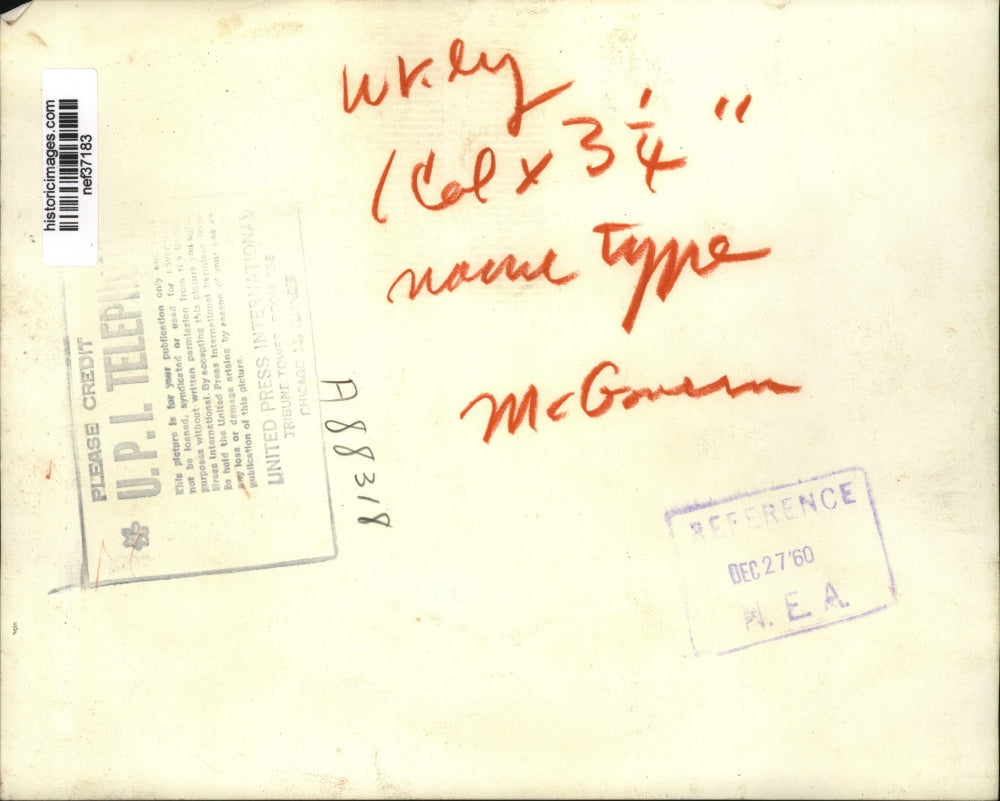 wkly
1 Col x 3 1/4"
name type
McGovern
historicimages.com
nef37183
PLEASE CREDIT
U.P.I. TELEPH
This picture is for your publication only and
not be loaned, syndicated or used for
purposes without written permission from the U
Press International. By accepting this picture you
to hold the United Press International harmless from
any loss or damage arising by reason of your
publication of this picture.
UNITED PRESS INTERNATIONAL
TRIBUNE TOWER
CHICAGO 11,
A88318
REFERENCE
DEC 27 '60
N. E. A.